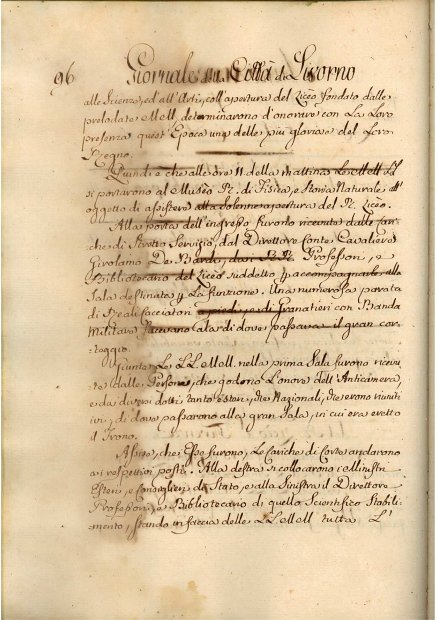 96 Giornale della Città di Livorno
alle Scienze, ed all'Arti, coll'apertura del Liceo fondato dalle
prelodate MM. determinarono d'onorare con La Loro
presenza quest'Epoca una delle più gloriose del Loro
Regno.
Quindi è che alle ore 11. della mattina Le MM. LL.
si portarono al Museo R. di Fisica, e Storia Naturale all'
oggetto di assistere alla solenne apertura del R. Liceo.
Alla porta dell'ingresso furono ricevute dalle cari-
che di Stretto Servizio, dal Direttore Conte Cavaliere
Girolamo De Bardi, dai Professori, e
Bibliotecario del Liceo suddetto p accompagnarle alla
Sala destinata p La funzione. Una numerosa parata
di Reali Cacciatori a piedi, e di Granatieri con Banda
Militare facevano ala di dove passava il gran cor-
teggio.
Giunte Le LL. MM. nella prima Sala furono ricevu-
te dalle Persone, che godono L'onore dell'Anticamera,
e da diversi dotti tanto esteri, che Nazionali, che erono riuniti
ivi, di dove passarono alla gran Sala, in cui era eretto
il Trono.
Assise, che Esse furono, Le Cariche di Corte andarono
ai respettivi posti. Alla destra si collocarono i Ministri
Esteri, e Consiglieri di Stato, e alla Sinistra il Direttore
Professori, e Bibliotecario di quello Scientifico Stabili-
mento, stando in faccia delle LL. MM. tutta L'